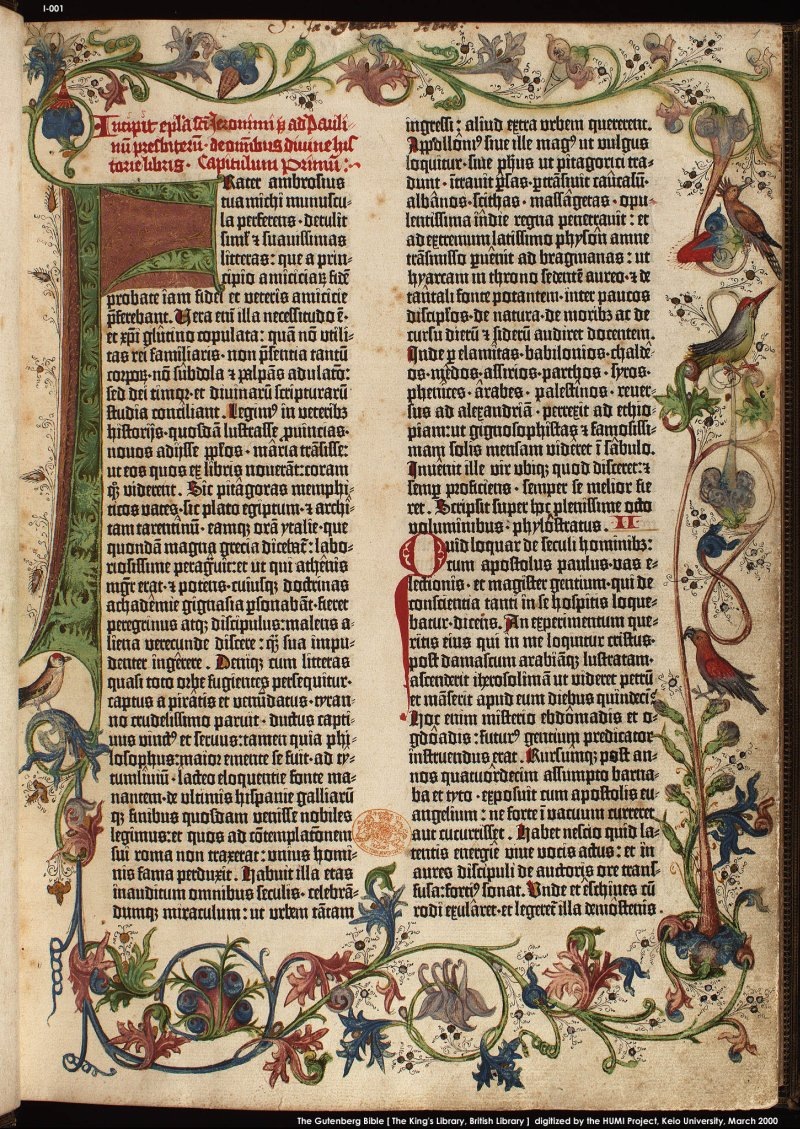 I-001
Incipit epła sc̄i Jeronimi p̄ƀ ad Pauli⸗
nū presbiterū · de om̄ibus diuine his⸗
torie libris · Capitulum Primū :·
Frater ambrosius
tua michi munuscu⸗
la perferens · detulit
siml̄ ⁊ suauissimas
litteras : que a prin⸗
cipio amiciciaꝝ fidē
probate iam fidei et veteris amicicie
p̄ferebant. Vera em̄ illa necessitudo ē ·
et xp̄i glutino copulata : quā nō vtili⸗
tas rei familiaris · non p̄sentia tantū
corpoꝝ · nō subdola ⁊ palpās adulato :
sed dei timor · et diuinarū scripturarū
studia conciliant. Legimꝰ in veteribꝫ
historijs · quosdā lustrasse ꝓuincias ·
nouos adijsse pp̄los · maria trāsisse :
ut eos quos ex libris nouerāt : coram
qꝫ viderent. Sic pitagoras memphi⸗
ticos vates · sic plato egiptum · ⁊ archi⸗
tam tarentinū · eamqꝫ orā ytalie · que
quondā magna grecia dicebat̄ : labo⸗
riosissime peragrauit : et ut qui athenis
mgr̄ erat · ⁊ potens · cuiusqꝫ doctrinas
achademie gignasia ꝑsonabāt · fieret
peregrinus atqꝫ discipulus : malens a⸗
liena verecunde discere : qꝫ sua impu⸗
denter ingerere. Deniqꝫ cum litteras
quasi toto orbe fugientes persequitur ·
captus a piratis et venūdatus · tyran⸗
no crudelissimo paruit · ductus capti⸗
uus vinctꝰ et seruus : tamen quia phi⸗
losophus : maior emente se fuit · ad ty⸗
tumliuiū · lacteo eloquentie fonte ma⸗
nantem · de vltimis hispanie galliarū
qꝫ finibus quosdam venisse nobiles
legimus : et quos ad cōtemplacōnem
sui roma non traxerat : vnius homi⸗
nis fama perduxit. Habuit illa etas
inauditum omnibus seculis · celebrā⸗
dumqꝫ miraculum : ut vrbem tātam
ingressi : aliud extra vrbem quererent.
Apollonꝰ siue ille magꝰ ut vulgus
loquitur · siue ph̄us ut pitagorici tra⸗
dunt · ītrauit ꝑsas · ꝑtrāsiuit caucasū ·
albanos · scithas · massagetas · opu⸗
lentissima īndie regna penetrauit : et
ad extremum latissimo physon amne
trāsmisso ꝑuenit ad bragmanas : ut
hyarcam in throno sedentē aureo · ⁊ de
tantali fonte potantem · inter paucos
discipl̄os · de natura · de moribꝫ ac de
cursu dierū ⁊ siderū audiret docentem.
Inde ꝑ elamitas · babilonios · chalde⸗
os · medos · assirios · parthos · syros ·
phenices · arabes · palestinos · reuer⸗
sus ad alexandriā · perrexit ad ethio⸗
piam : ut gignosophistas ⁊ famosissi⸗
mam solis mensam videret ī sabulo.
Inuenit ille vir vbiqꝫ quod disceret : ⁊
semꝑ proficiens · semper se melior fie
ret. Scripsit super hoc plenissime octo
voluminibus · phylostratus. II
Quid loquar de seculi hominibꝫ :
cum apostolus paulus · vas e⸗
lectionis · et magister gentium · qui de
conscientia tanti in se hospitis loque⸗
batur · dicēs. An experimentum que⸗
ritis eius qui in me loquitur cristus ·
post damascum arabiāqꝫ lustratam ·
ascenderit iherosolimā ut videret petrū
et māserit apud eum diebus quindecī ·
Hoc enim misterio ebdomadis et o⸗
gdoadis : futurꝰ gentium predicator
instruendus erat. Rursūqꝫ post an⸗
nos quatuordecim assumpto barna⸗
ba et tyto · exposuit cum apostolis eu⸗
angelium : ne forte ī vacuum curreret
aut cucurrisset. Habet nescio quid la⸗
tentis energie viue vocis actus : et in
aures discipuli de auctoris ore trans⸗
fusa : forciꝰ sonat. Vnde et eschines cū
rodi exularet · et legeret̄ illa demostenis
The Gutenberg Bible [ The King's Library, British Library ] digitized by the HUMI Project, Keio University, March 2000